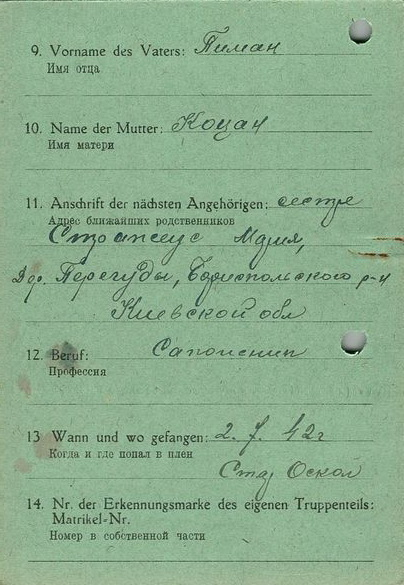 9. Vorname des Vaters: Пиман
Имя отца
10. Name der Mutter: Коцан
Имя матери
11. Anschrift der nächsten Angehörigen: сестре
Адрес ближайших родственников
Мария,
Дер. Перегуды, Бориспольского р-н
Киевской обл
12. Beruf: Сапожник
Профессия
13 Wann und wo gefangen: 2. 7. 42 г
Когда и где попал в плен
Стар Оскол
14. Nr. der Erkennungsmarke des eigenen Truppenteils:
Matrikel-Nr.
Номер в собственной части